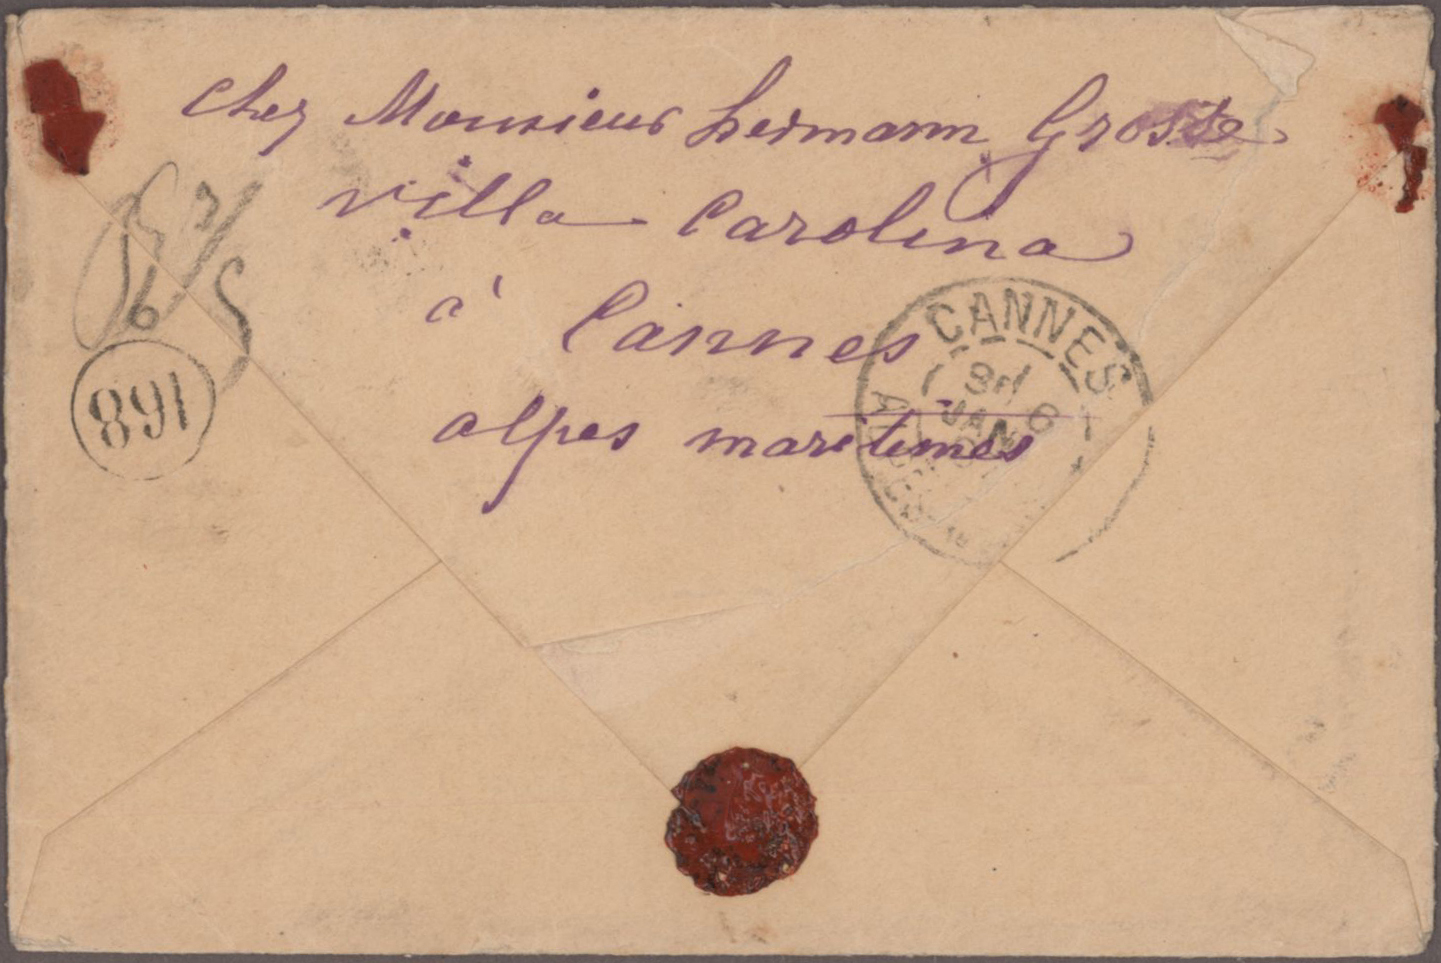 Chez Monsieur hermann Grosse
villa Carolina
à Cannes
alpes maritimes
CANNES
6
JAN
168